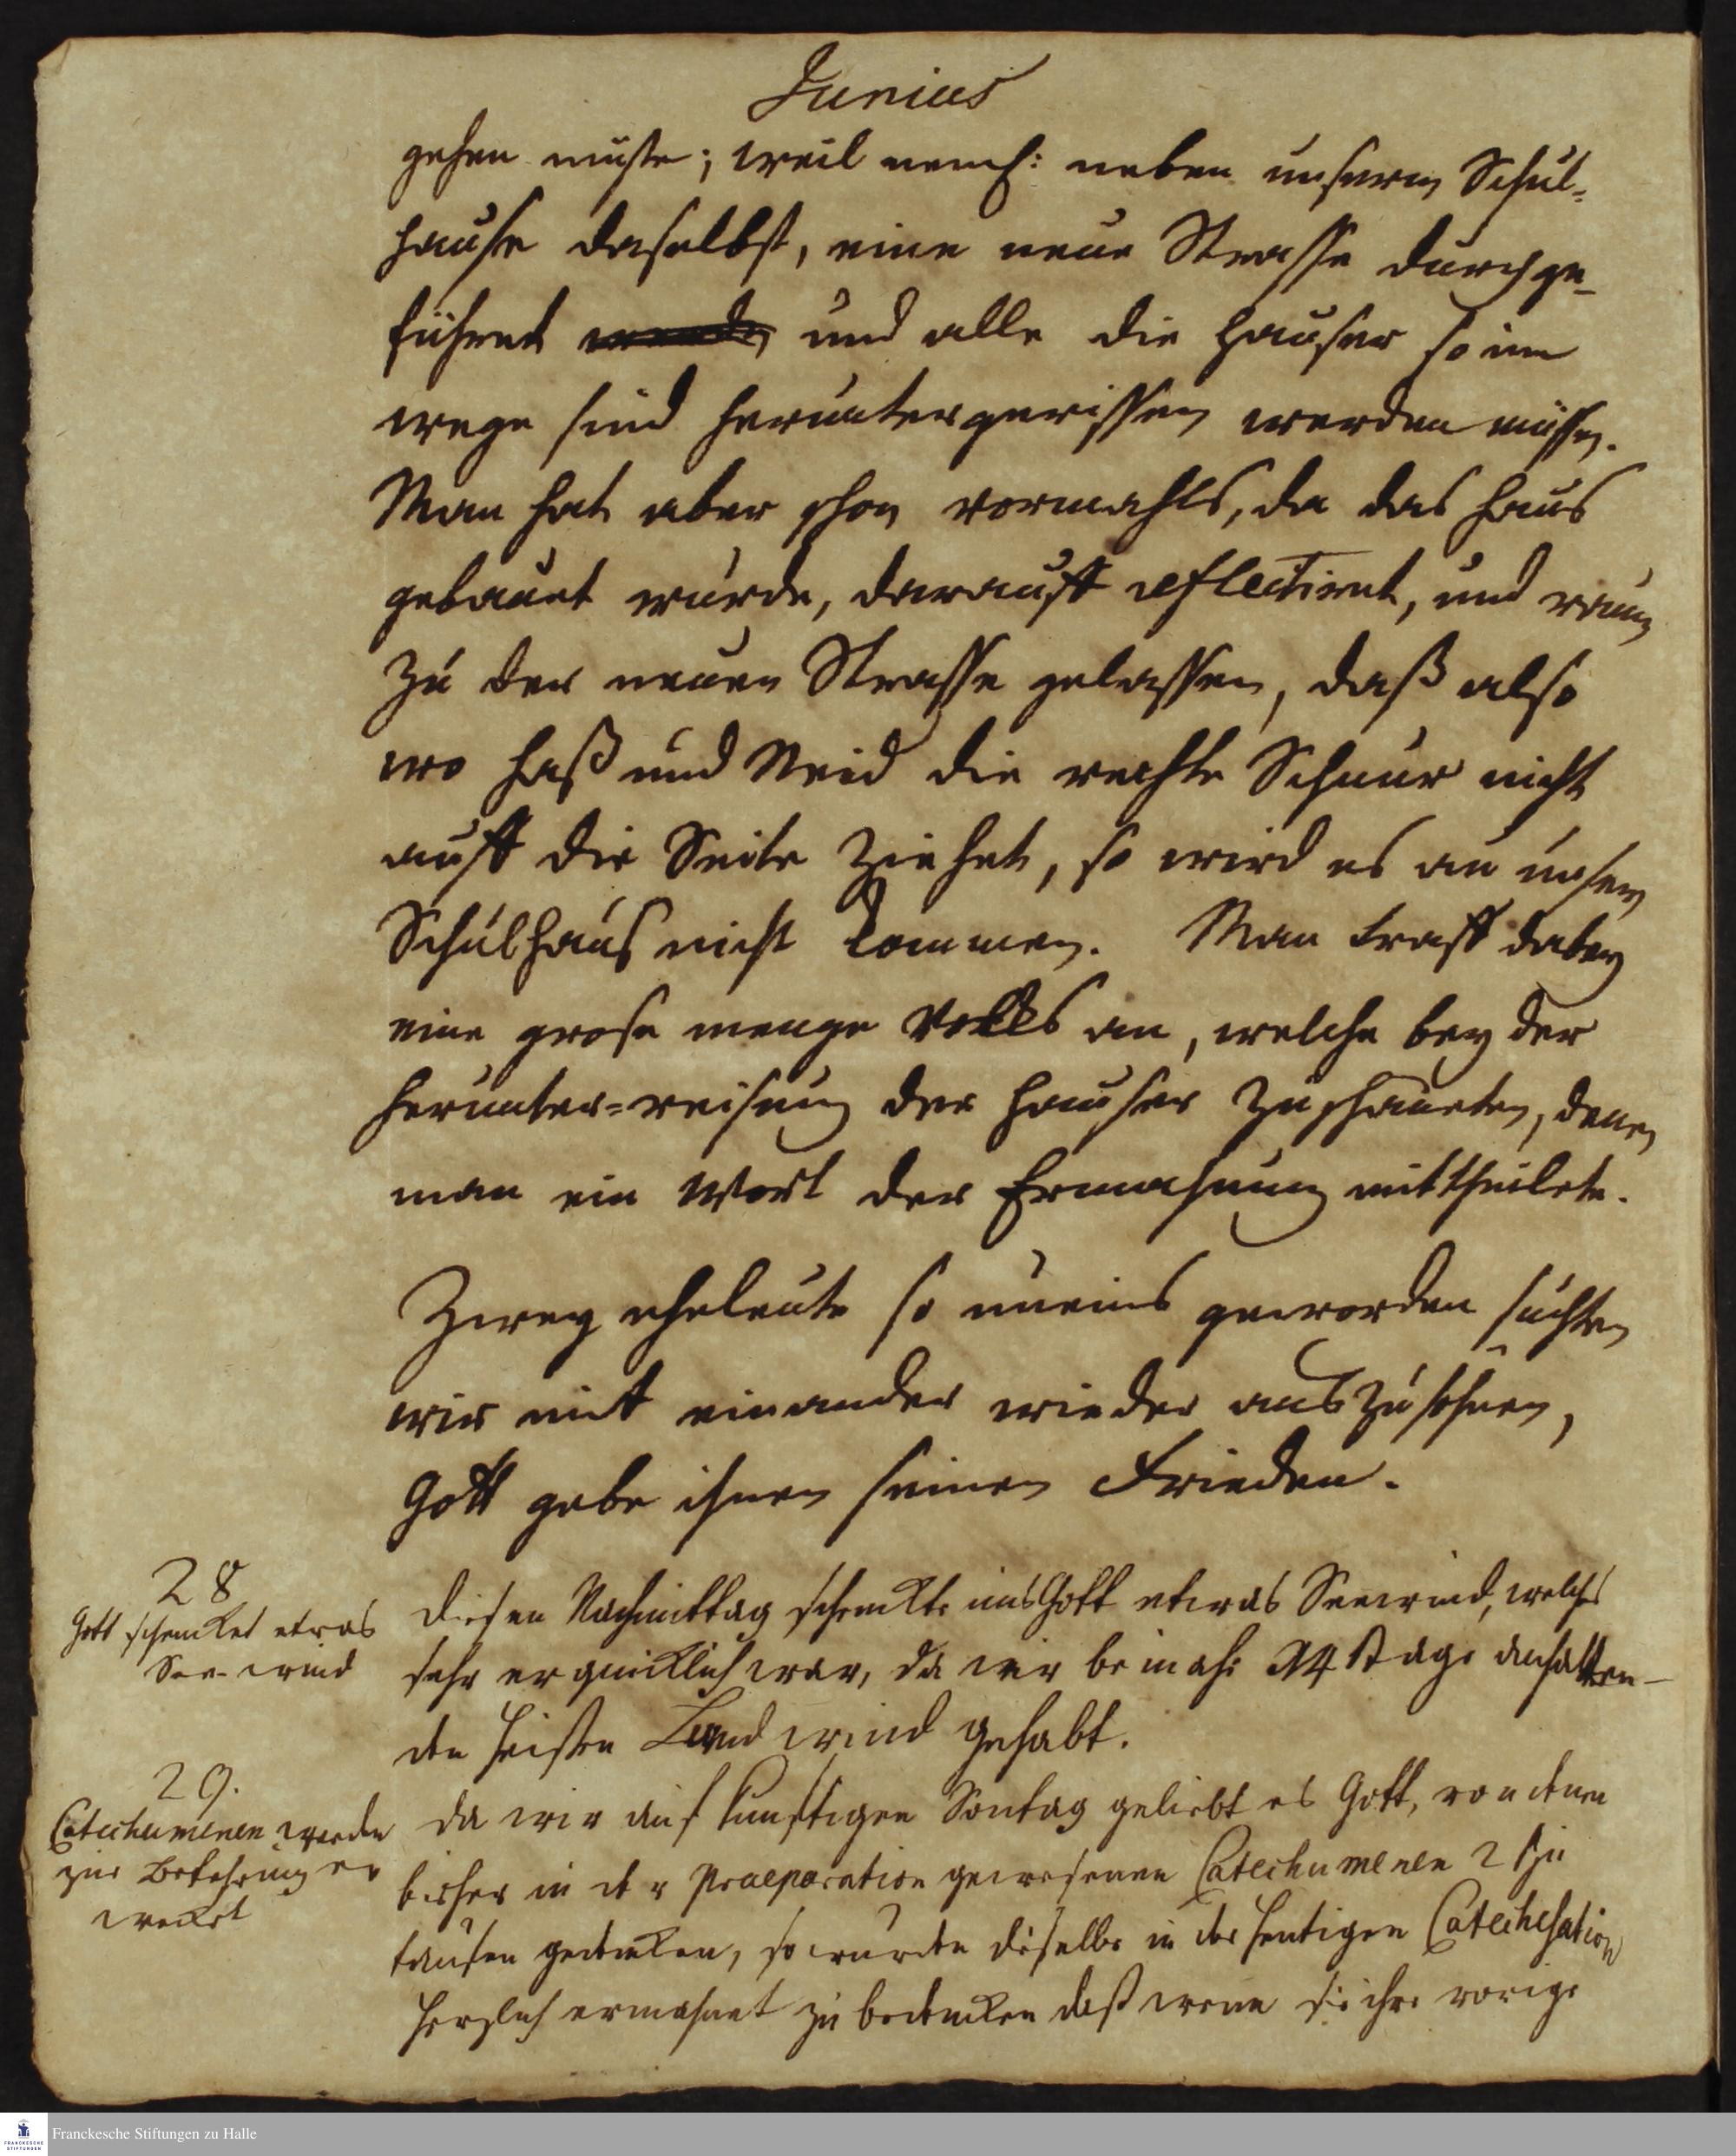 Junius
gehen muste; weil neml: neben unserm Schul-
hause daselbst, eine neue Strasse durchge-
führet und alle die Häuser so im
wege sind heruntergerissen werden müssen.
Man hat aber schon vormahls, da das Haus
gebauet wurde, darauff reflectiret, und raum
zu der neuen Strasse gelassen, daß also
wo Haß und Neid die rechte Schnur nicht
auff die Seite ziehet, so wird es an unser
Schulhaus nicht kommen. Man traff dabey
eine grose menge Volks an, welche bey der
herunter-reisung der Häuser zuschaueten, denen
man ein Wort der Ermahnung mittheilete.
Zwey eheleute so uneins geworden suchten
wir mit einander wieder auszusöhnen,
Gott gebe ihnen seinen Frieden.
28
Gott schencket etwas
See-wind
Diesen Nachmittag schenckte uns Gott etwas Seewind, welches
sehr erquicklich war, da wir beinahe 14 Tage anhalten-
den heissen Landwind gehabt.
29.
Catechumenen werden
zur Bekehrung er
weckt
Da wir auf künfftigen Sontag geliebt es Gott, von denen
bisher in der Praeparation gewesenen Catechumenen zu
taufen gedencken, so wurden dieselbe in der heutigen Catechesation
herzlich ermahnet zu bedencken daß wenn sie ihre vorige
Franckesche Stiftungen zu Halle
FRANCKESCHE
STIFTUNGEN